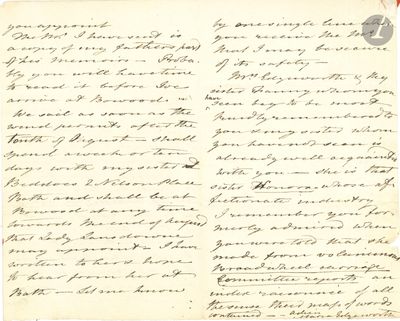 you appoint
The Ms. I have sent is
a copy of my fathers part
of his Memoirs — Proba-
bly you will have time
to read it before I
arrive at Bowood —
We sail as soon as the
wind permits after the
tenth of August — shall
spend a week or ten
days with my sister
Beddoes 2 Nelson Place
Bath and shall be at
Bowood at any time
towards the end of August
that Lady Lansdowne
may appoint — I have
written to her & hope
to hear from her at
Bath — Let me know
by one single line when
you receive the Ms.
that I may be secure
of its safety —
Mrs. Edgeworth & My
sister Fanny whom you
have seen beg to be most
kindly remembered to
you & my sister whom
you have not seen is
already well acquainted
with you — she is that
sister Honora whose af-
fectionate industry
I remember you for-
merly admired when
you were told that she
made from voluminous
Broad wheel carriage
Committee reports an
index raisonné of all
the sense their mass of words
contained — adieu
Maria Edgeworth